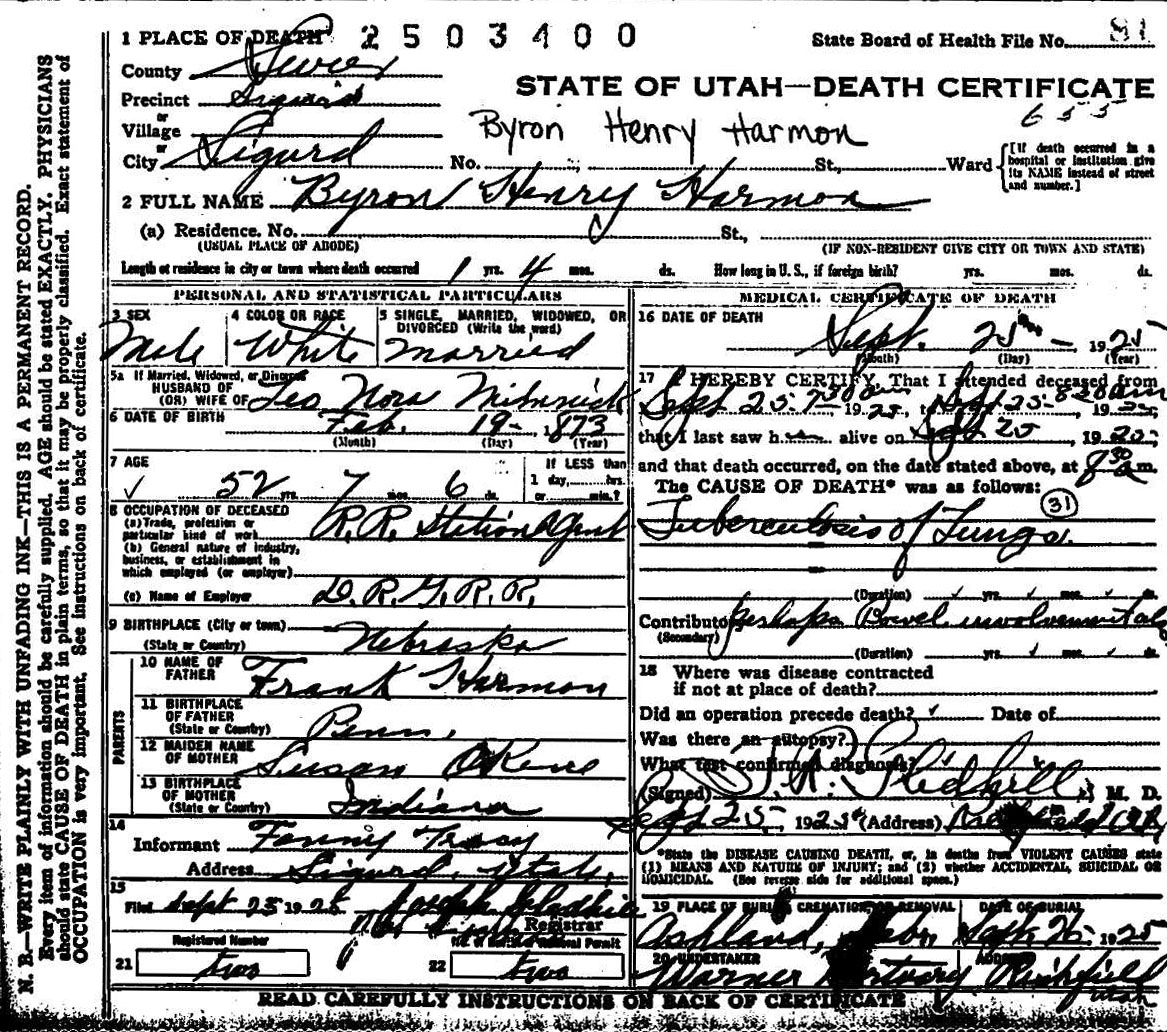 1 PLACE OF DEATH 2503400 State Board of Health File No. 81
County Sevier
STATE OF UTAH—DEATH CERTIFICATE
Precinct Sigurd
655
or
Village
Byron Henry Harmon
or
City Sigurd No. St., Ward
[If death occurred in a hospital or institution give its NAME instead of street and number.]
2 FULL NAME Byron Henry Harmon
(a) Residence. No. St.,
(USUAL PLACE OF ABODE) (IF NON-RESIDENT GIVE CITY OR TOWN AND STATE)
Length of residence in city or town where death occurred 1 yrs. 4 mos. ds. How long in U. S., if foreign birth? yrs. mos. ds.
PERSONAL AND STATISTICAL PARTICULARS
3 SEX
Male
4 COLOR OR RACE
White
5 SINGLE, MARRIED, WIDOWED, OR
DIVORCED (Write the word)
Married
5a If Married, Widowed, or Divorced
HUSBAND OF
(OR) WIFE OF Leo Nora
6 DATE OF BIRTH Feb. 19- 1873
(Month) (Day) (Year)
7 AGE
52 yrs. 7 mos. 6 ds.
If LESS than
1 day, hrs.
or min.?
8 OCCUPATION OF DECEASED
(a) Trade, profession or
particular kind of work R.R. Station Agent
(b) General nature of industry,
business, or establishment in
which employed (or employer)
(c) Name of Employer D.R.G.R.R.
9 BIRTHPLACE (City or town)
(State or Country) Nebraska
PARENTS
10 NAME OF
FATHER Frank Harmon
11 BIRTHPLACE
OF FATHER
(State or Country) Penn.
12 MAIDEN NAME
OF MOTHER Susan
13 BIRTHPLACE
OF MOTHER
(State or Country) Indiana
14
Informant Fanny Tracy
Address Sigurd, Utah.
15
Filed Sept 25 1925 Joseph Gledhill
Registrar
Registered Number
No. of Burial or Removal Permit
21 two 22 two
MEDICAL CERTIFICATE OF DEATH
16 DATE OF DEATH
Sept. 25 - 1925
(Month) (Day) (Year)
17 I HEREBY CERTIFY, That I attended deceased from
Sept 25. 7 30 am 1925, to Sept 25 - 8 30 am, 1925
that I last saw h alive on Sept 25, 1925,
and that death occurred, on the date stated above, at 8 30 a m.
The CAUSE OF DEATH* was as follows:
31
Tuberculosis of Lungs.
(Duration) yrs. mos. ds.
Contributory perhaps Bowel involvement also
(Secondary)
(Duration) yrs. mos. ds.
18 Where was disease contracted
if not at place of death?
Did an operation precede death? Date of
Was there an autopsy?
What test confirmed diagnosis?
(Signed) Gledhill M. D.
Sept 25, 1925 (Address) Richfield
*State the DISEASE CAUSING DEATH, or, in deaths from VIOLENT CAUSES state
(1) MEANS AND NATURE OF INJURY; and (2) whether ACCIDENTAL, SUICIDAL OR
HOMICIDAL. (See reverse side for additional space.)
19 PLACE OF BURIAL CREMATION OR REMOVAL DATE OF BURIAL
Ashland, Nebr. Sept 26 1925
20 UNDERTAKER ADDRESS
Warner Mortuary Richfield
Utah
READ CAREFULLY INSTRUCTIONS ON BACK OF CERTIFICATE
N. B.—WRITE PLAINLY WITH UNFADING INK—THIS IS A PERMANENT RECORD.
Every item of information should be carefully supplied. AGE should be stated EXACTLY. PHYSICIANS
should state CAUSE OF DEATH in plain terms, so that it may be properly classified. Exact statement of
OCCUPATION is very important. See instructions on back of certificate.